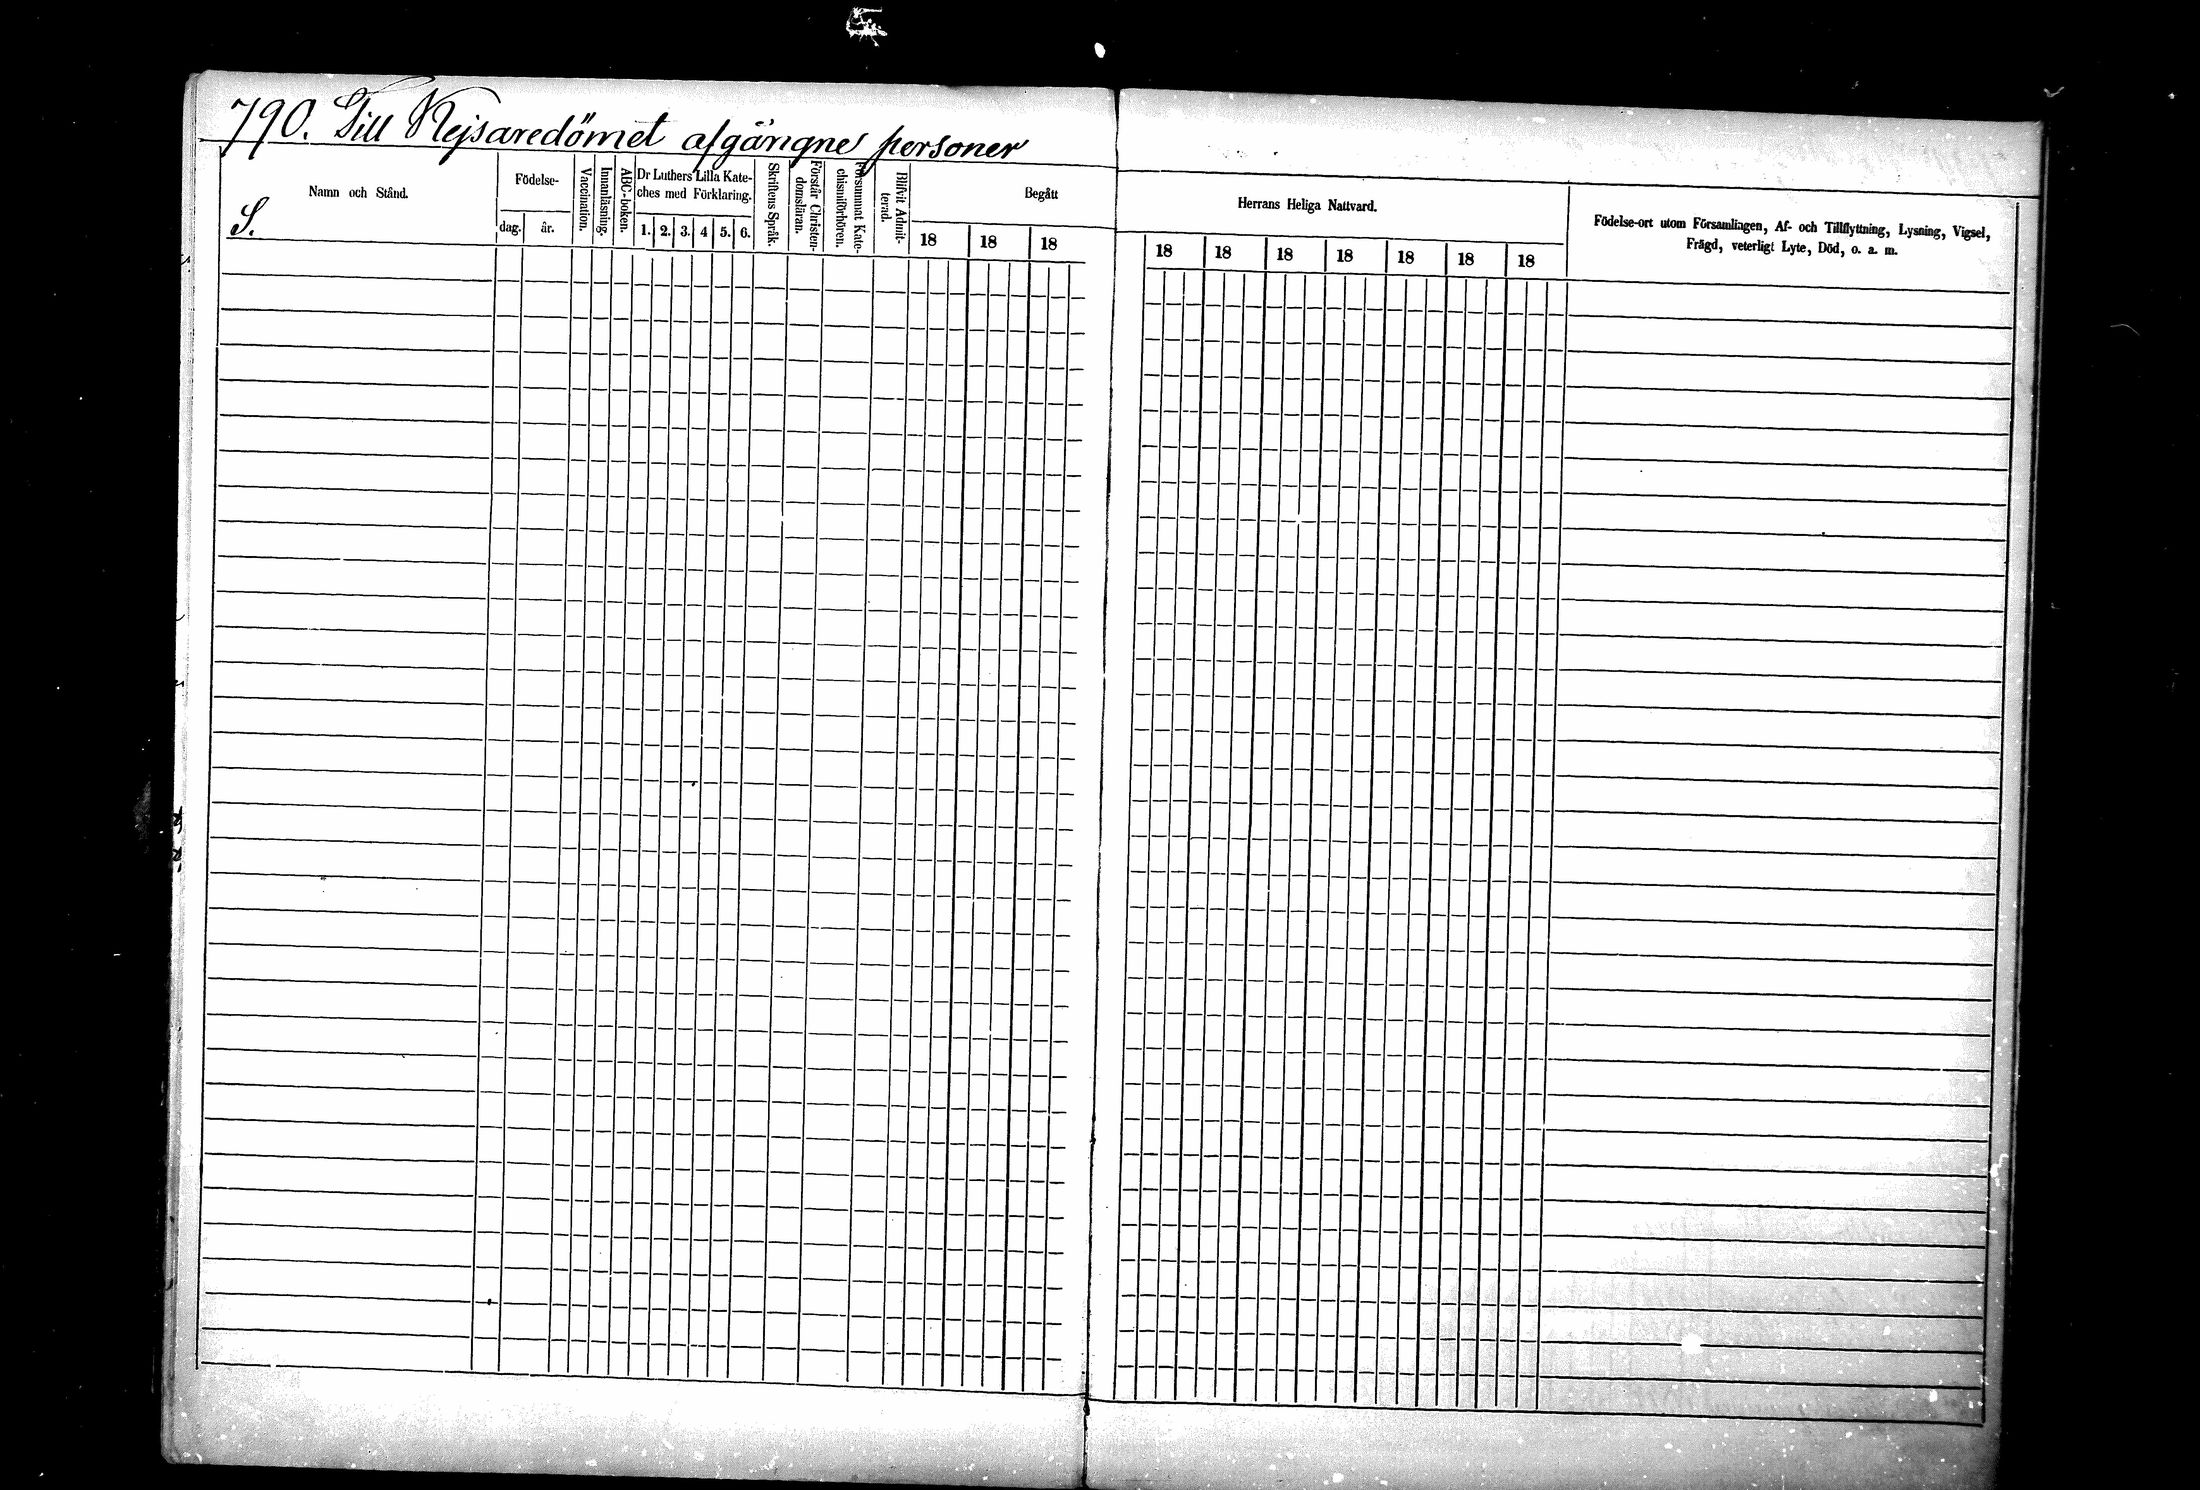 790. Till Kejsaredömet afgångne personer
Namn och Stånd.
S.
Födelse-
dag. år.
Vaccination.
Innanläsning.
ABC-boken.
Dr Luthers Lilla Kate-
ches med Förklaring.
1. 2. 3. 4 5. 6.
Skriftens Språk.
Förstår Christen-
domsläran.
Försummat Kate-
chismiförhören.
Blifvit Admit-
terad.
Begått
18 18 18
Herrans Heliga Nattvard.
18 18 18 18 18 18 18
Födelse-ort utom Församlingen, Af- och Tillflyttning, Lysning, Vigsel,
Frägd, veterligt Lyte, Död, o. a. m.